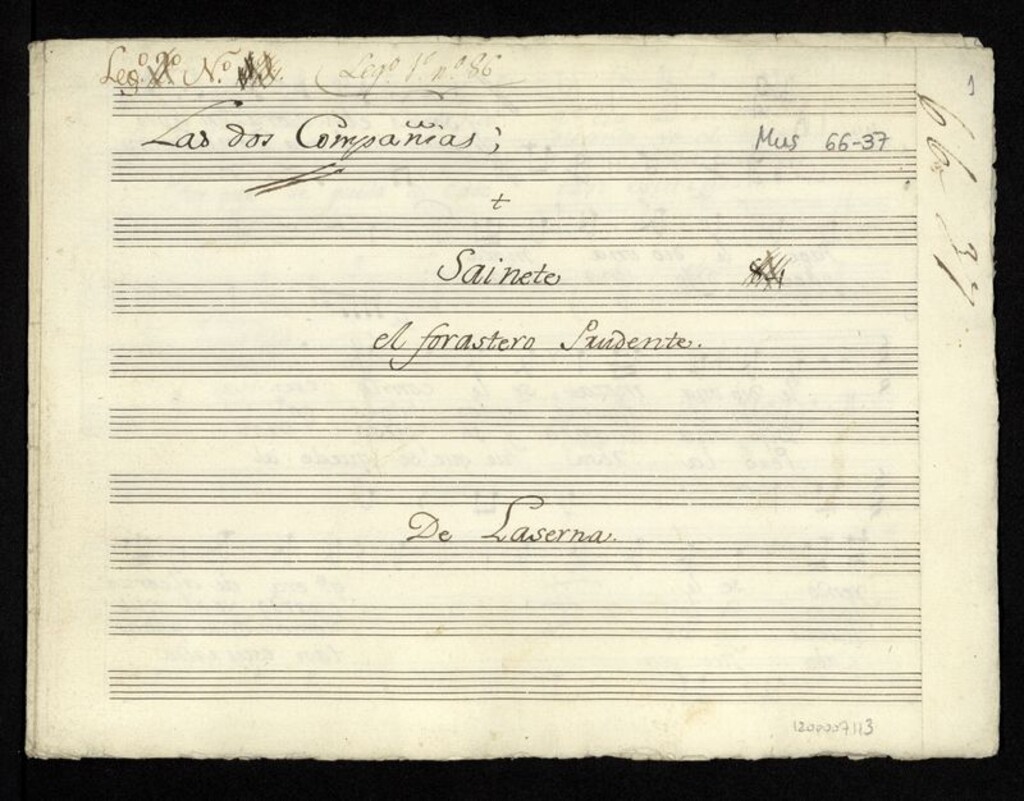 Leg.º 2º N.º
Leg.º 1.º n.º 86
1
Las dos Compañias;
Mus 66-37
66-37
+
Sainete
el forastero Prudente.
De Laserna.
1200007113